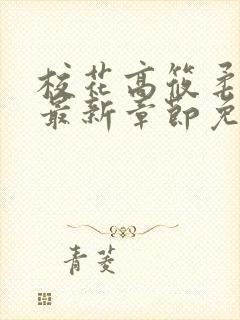 校花高筱柔
最新章節免
青菱